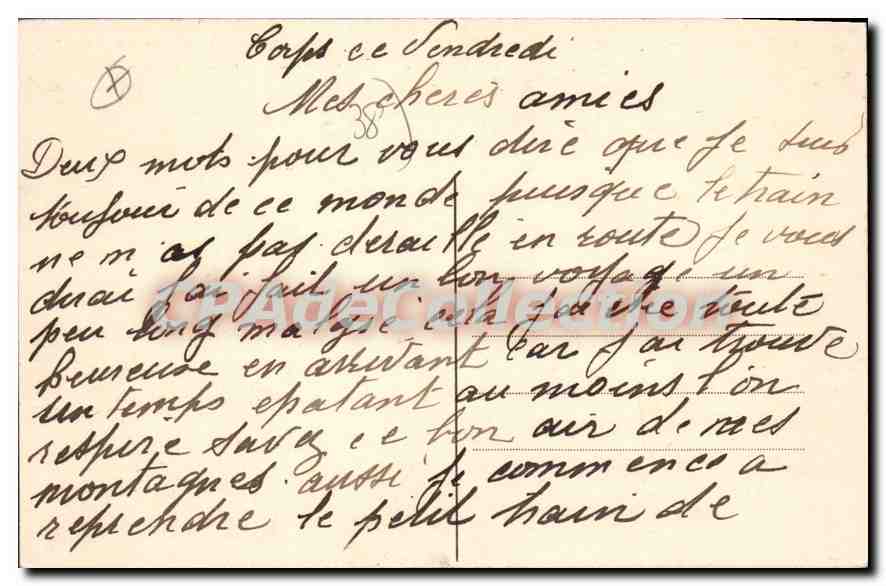 Corps ce Vendredi
Mes cheres amies
38
Deux mots pour vous dire que je suis
toujour de ce monde puisque le train
ne m as pas deraillé en route Je vous
dirai j'ai fait un bon voyage un
peu long malgré cela j'ai été toute
CPAdeCollection
heureuse en arrivant car j'ai trouvé
un temps epatant au moins l'on
respire savez ce bon air de mes
montagnes aussi je commence a
reprendre le petit train de